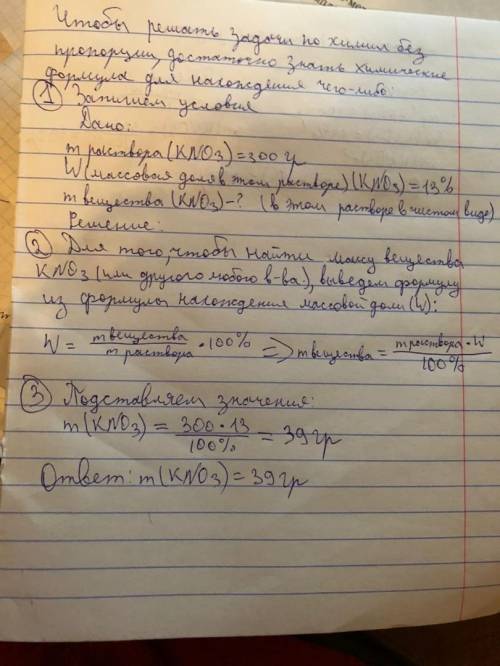 Чтобы решать задачи по химии без
пропорции, достаточно знать химические
формула для нахождения чего-либо:
① Запишем условия
Дано:
m раствора (KNO3) = 300 гр
W (массовая доля в этом растворе) (KNO3) = 13%
m вещества (KNO3) - ? (в этом растворе в чистом виде)
Решение:
② Для того, чтобы найти массу вещества
KNO3 (или другого любого в-ва), выведем формулу
из формулы нахождения массовой доли (W):
W = m вещества / m раствора · 100% => m вещества = m раствора · W / 100%
③ Подставляем значения:
m (KNO3) = 300 · 13 / 100% = 39 гр
Ответ: m (KNO3) = 39 гр